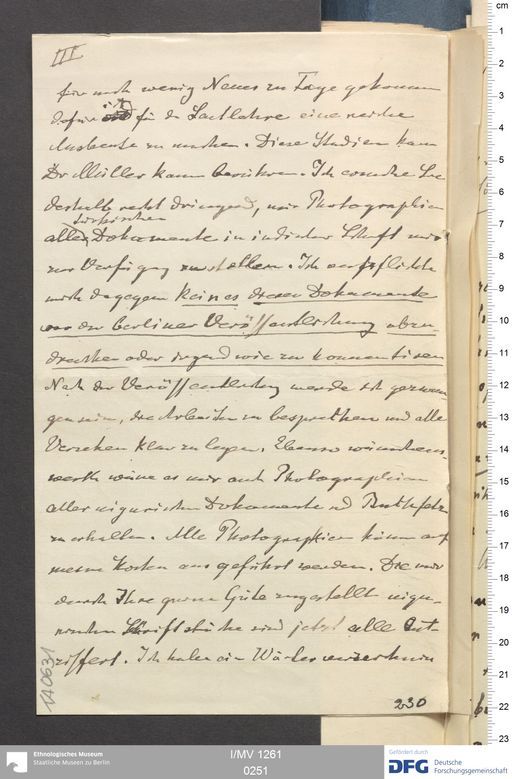 III
für mich wenig Neues zu Tage gekommen
dafür ist für die Lautlehre eine reiche
Ausbeute zu machen. Diese Studien kann
Dr Müller kaum berühren. Ich ersuche Sie
deshalb recht dringend, mir Photographien
türkischen
aller Dokumente in indischer Schrift mir
zur Verfügung zu stellen. Ich verpflichte
mich dagegen keines dieser Dokumente
vor der berliner Veröffentlichung abzu-
drucken oder irgendwie zu kommentiren
Nach der Veröffentlichung werde ich gezwun-
gen sein, die Arbeiten zu besprechen und alle
Versehen klar zu legen. Ebenso wünschens-
werth wäre es mir auch Photographien
aller uigurischen Dokumente
zu erhalten. Alle Photographien können auf
meine Kosten ausgeführt werden. Die mir
durch Ihre grosse Güte zugestellten uigu-
rischen Schriftstücke sind jetzt alle ent-
ziffert. Ich habe ein Wörterverzeichniss
140631
230
cm
1
2
3
4
5
6
7
8
9
10
11
12
13
14
15
16
17
18
19
20
21
22
23
Ethnologisches Museum
Staatliche Museen zu Berlin
I/MV 1261
0251
Gefördert durch
DFG Deutsche
Forschungsgemeinschaft